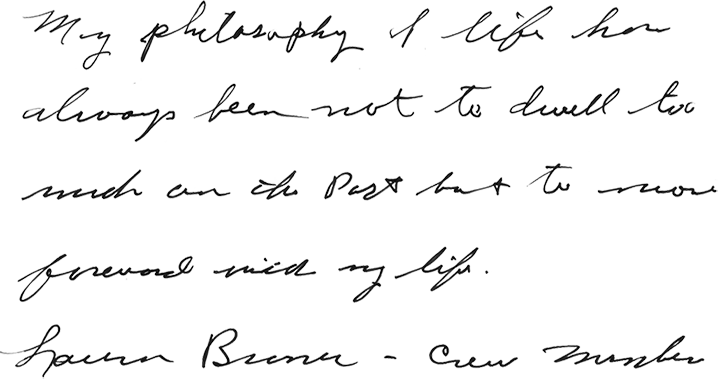 My philosophy of life has
always been not to dwell too
much on the Past but to move
foreword with my life.
Bruner - Crew Member